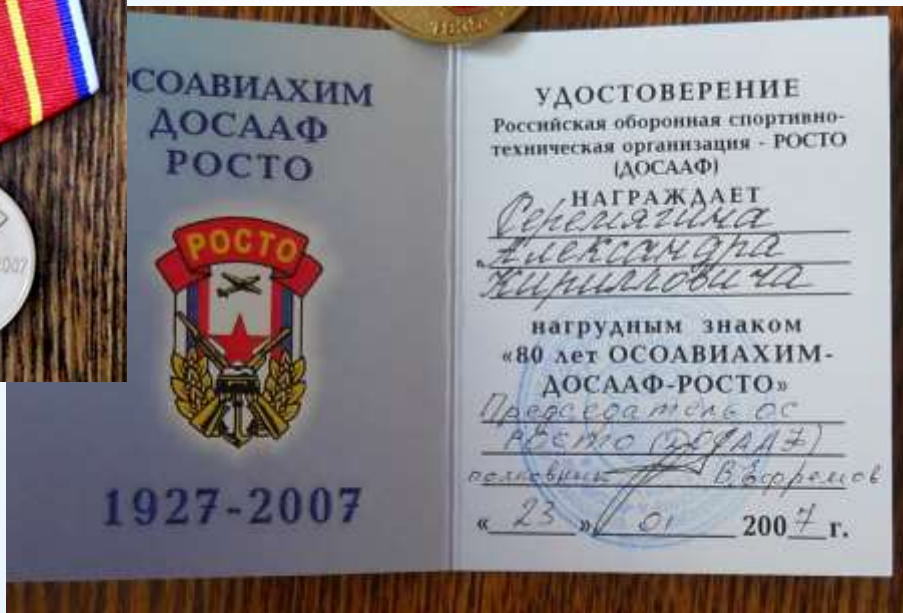 2007
ОСОАВИАХИМ
ДОСААФ
РОСТО
РОСТО
1927-2007
УДОСТОВЕРЕНИЕ
Российская оборонная спортивно-
техническая организация - РОСТО
(ДОСААФ)
НАГРАЖДАЕТ
Серемягина
Александра
Кирилловича
нагрудным знаком
«80 лет ОСОАВИАХИМ-
ДОСААФ-РОСТО»
Председатель ОС
РОСТО (ДОСААФ)
полковник В. Ефремов
« 23 » 01 2007 г.